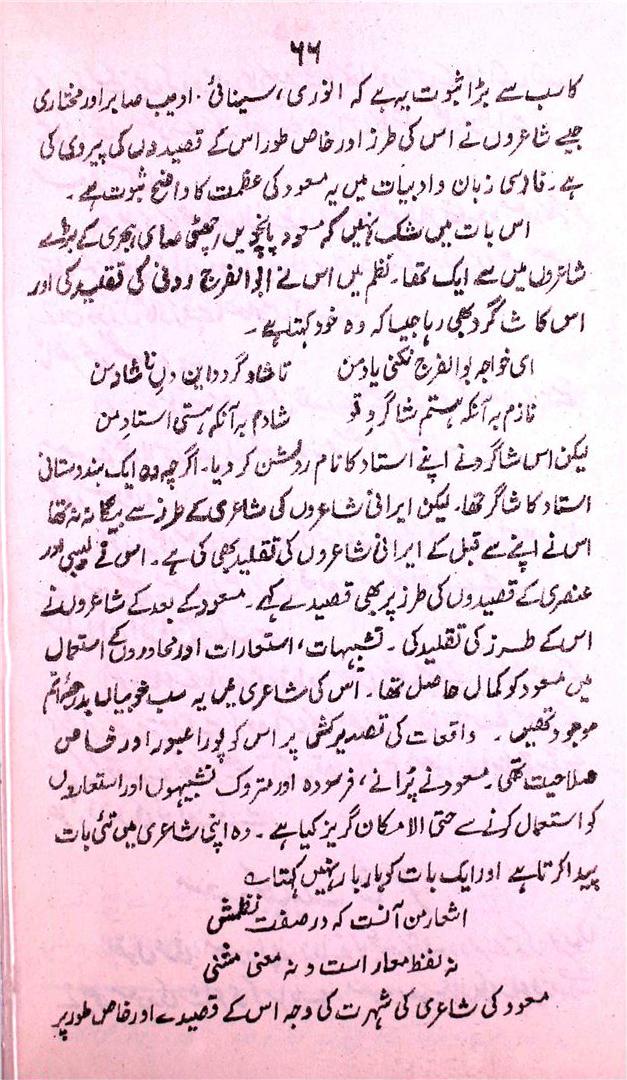 ۶۶
کا سب سے بڑا ثبوت یہ ہے کہ انوری، سینائی، ادیب صابر اور مختاری
جیسے شاعروں نے اس کی طرز اور خاص طور اس کے قصیدوں کی پیروی کی
ہے۔ فارسی زبان و ادبیات میں یہ مسعود کی عظمت کا واضح ثبوت ہے۔
اس بات میں شک نہیں کہ مسعود پانچویں چھٹی صدی ہجری کے بڑے
شاعروں میں سے ایک تھا۔ نظم میں اس نے ابوالفرج رونی کی تقلید کی اور
اس کا شاگرد بھی رہا جیسا کہ وہ خود کہتا ہے۔
ای خواجہ بوالفرج نکنی یاد من تا شاد گردد این دلِ ناشاد من
نازم بہ آنکہ ہستم شاگردِ تو شادم بہ آنکہ ہستی استاد من
لیکن اس شاگرد نے اپنے استاد کا نام روشن کر دیا۔ اگرچہ وہ ایک ہندوستانی
استاد کا شاگر تھا۔ لیکن ایرانی شاعروں کی شاعری کے طرز سے بیگانہ نہ تھا
اس نے اپنے سے قبل کے ایرانی شاعروں کی تقلید بھی کی ہے۔ اس نے لبیبی اور
عنصری کے قصیدوں کی طرز پر بھی قصیدے کہے۔ مسعود کے بعد کے شاعروں نے
اس کے طرز کی تقلید کی۔ تشبیہات، استعارات اور محاوروں کے استعمال
میں مسعود کو کمال حاصل تھا۔ اس کی شاعری میں یہ سب خوبیاں بدرجۂ اتم
موجود تھیں۔ واقعات کی تصویر کشی پر اس کو پورا عبور اور خاص
صلاحیت تھی۔ مسعود نے پرانے، فرسودہ اور متروک تشبیہوں اور استعاروں
کو استعمال کرنے سے حتی الامکان گریز کیا ہے۔ وہ اپنی شاعری میں نئی بات
پیدا کرتا ہے اور ایک بات کو بار بار نہیں کہتا ہے
اشعار من آنست کہ در صفت نظمش
نہ لفظ معار است و نہ معنی مثنی
مسعود کی شاعری کی شہرت کی وجہ اس کے قصیدے اور خاص طور پر